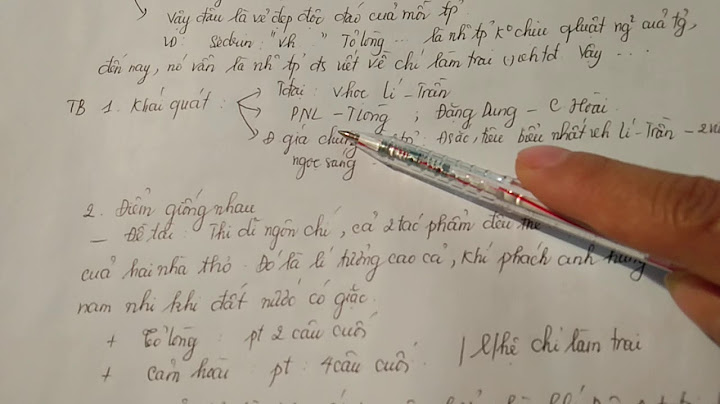 Vậy đâu là vẻ đẹp độc đáo của mỗi tp.
VD: Sêđrin: "Vh ..." Tỏ lòng ... là nh~ tp k° chịu qluật ng² của tg,
đến nay, nó vẫn là nh~ tp đs viết về chí làm trai Vậy ...
TB 1. Khái quát: Tđại: Vhọc Lí - Trần
PNL - TLòng; Đặng Dung - C Hoài.
Đ giá chung Đsắc, tiêu biểu nhất vh Lí - Trần - 2
ngọc sáng
2. Điểm giống nhau
- Đề tài: Thi dĩ ngôn chí, cả 2 tác phẩm đều
của hai nhà thơ. Đó là lí tưởng cao cả, khí phách anh hùng
nam nhi khi đất nước có giặc.
+ Tỏ lòng: pt 2 câu cuối
+ Cảm hoài: pt: 4 câu cuối. / l/hệ chí làm trai